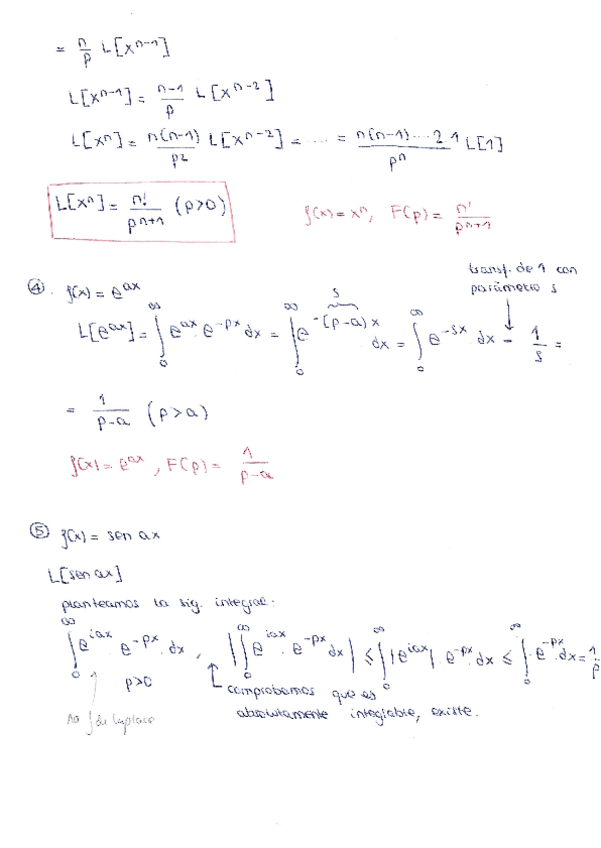 = n/p L[xⁿ⁻¹]
L[xⁿ⁻¹] = n-1/p L[xⁿ⁻²]
L[xⁿ] = n(n-1)/p² L[xⁿ⁻²] = ···· = n(n-1)····2·1/pⁿ L[1]
L[xⁿ] = n!/pⁿ⁺¹ (p>0)   f(x) = xⁿ, F(p) = n!/pⁿ⁺¹
transf. de 1 con
parámetro s
④. f(x) = e^ax
L[e^ax] = ∫₀^∞ e^ax · e^-px dx = ∫₀^∞ e^-(p-a)x dx = ∫₀^∞ e^-sx · dx = 1/s =
s
= 1/p-a (p>a)
f(x) = e^ax, F(p) = 1/p-a
⑤ f(x) = sen ax
L[sen ax]
planteamos la sig. integral:
∫₀^∞ e^iax · e^-px · dx, |∫₀^∞ e^iax · e^-px dx| ≤ ∫₀^∞ |e^iax| · e^-px · dx ≤ ∫₀^∞ e^-px · dx = 1/p
p>0
comprobamos que es
absolutamente integrable, existe.
no ∫ de laplace